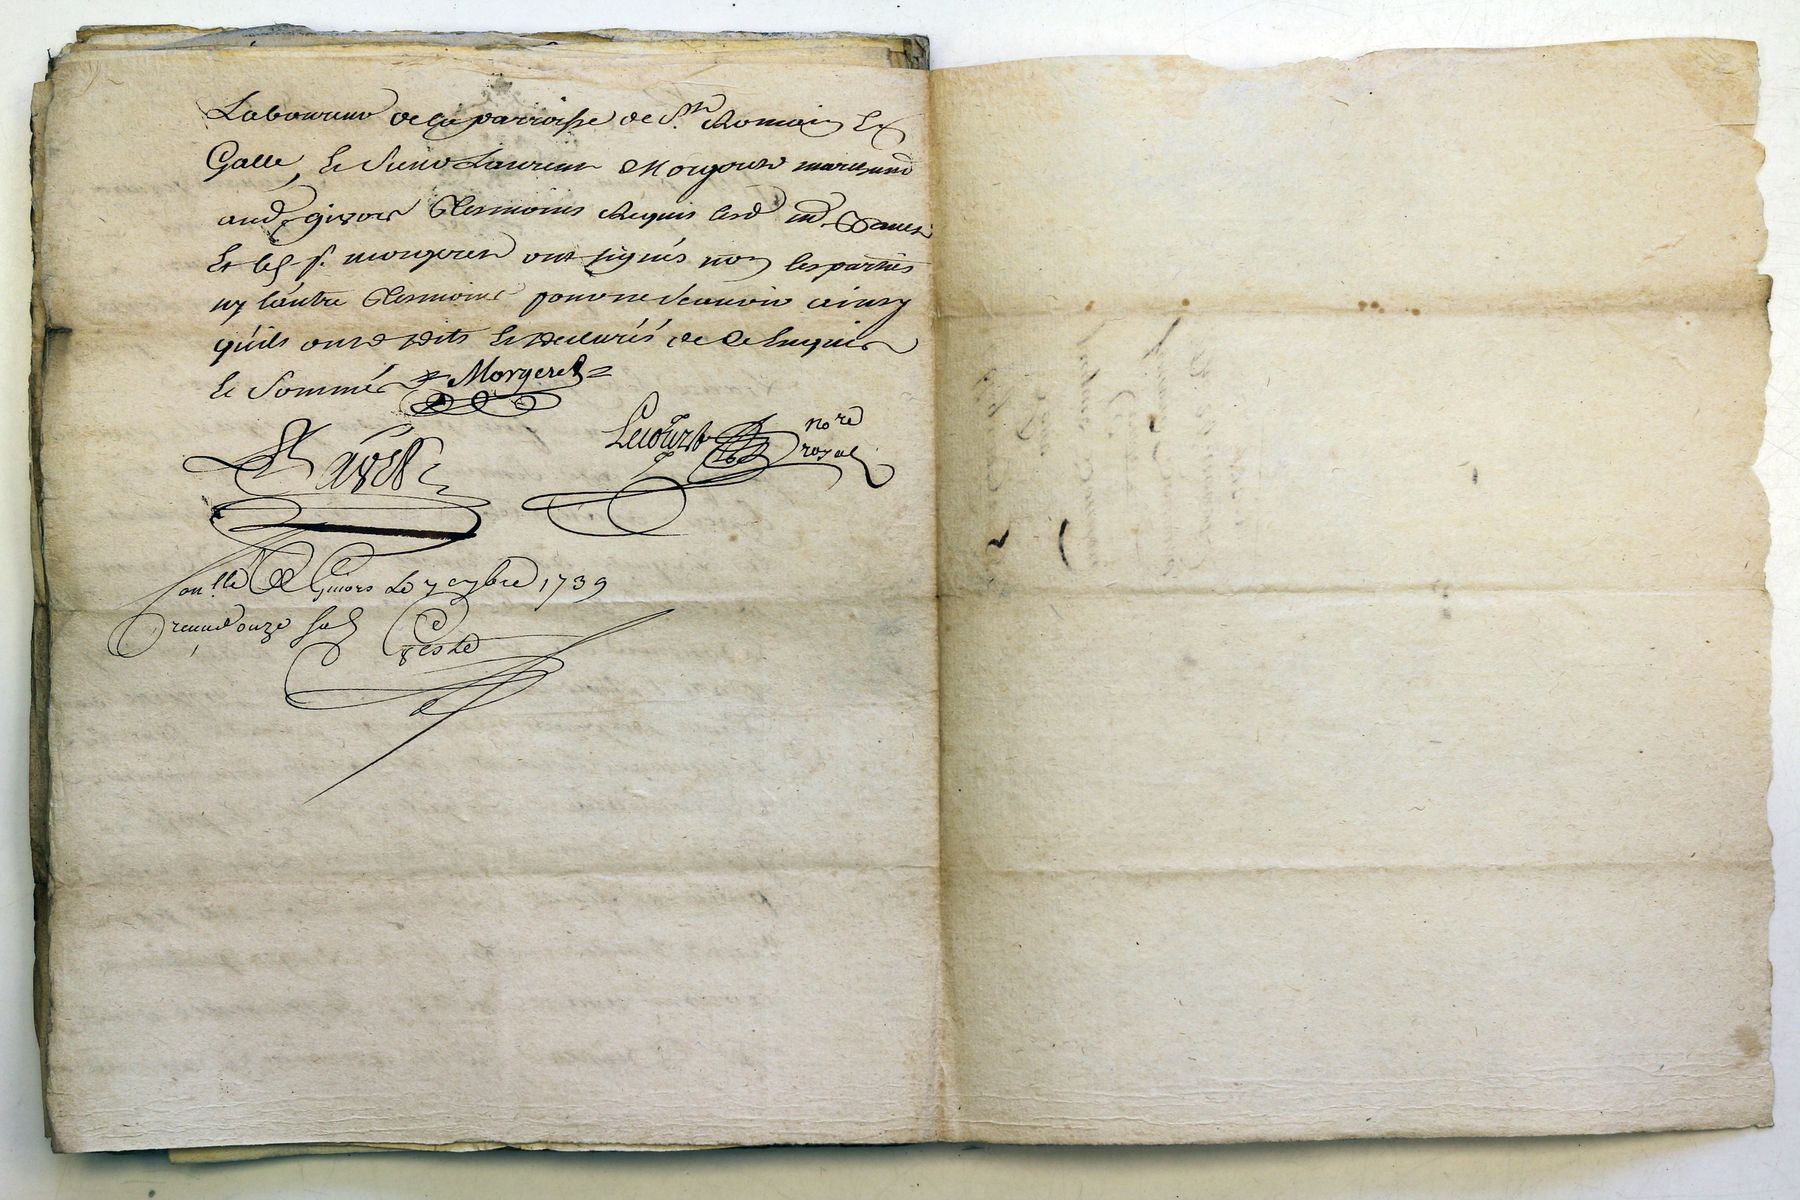 Laboureur de la parroisse de St. Romain En
Galle, le Sieur Laurent Morgeret marchand
aud. givors tesmoins Requis led. md.
Et led. sr. morgeret ont signés non les parties
ny lautre tesmoins pour ne scavoir ainsy
qu'ils ont dits Et declarés de ce Enquis
Et Sommés Morgeret
Lecourt nore
royal
Con.lle a Givors Le 7 9bre 1739
receu onze sols